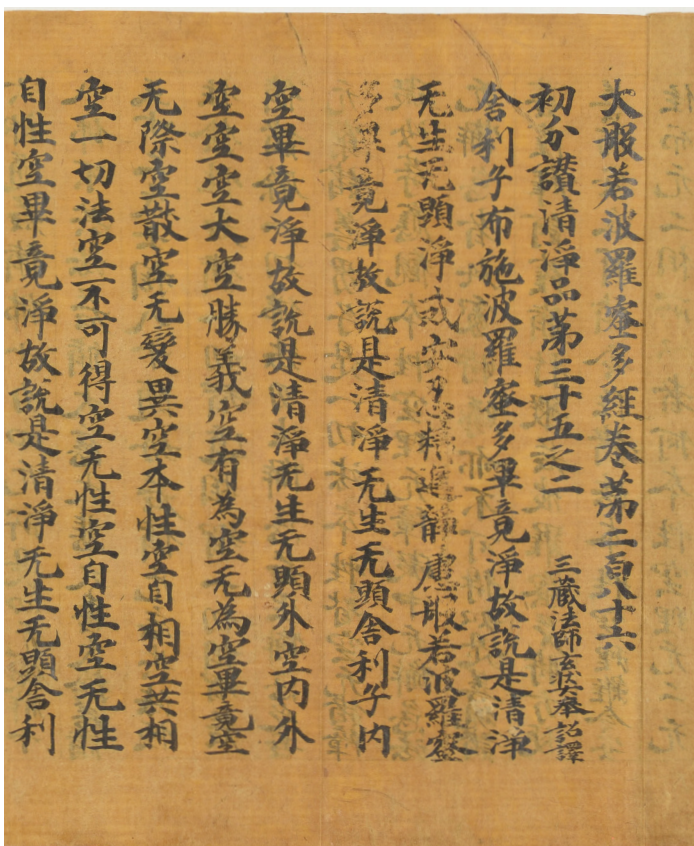 大般若波羅蜜多經卷苐二百八十六
初分讃清淨品苐三十五之二
三藏法師玄奘奉 詔譯
舎利子布施波羅蜜多畢竟淨故說是清淨
无生无顕淨戒安忍精進靜慮般若波羅蜜
多畢竟淨故說是清淨无生无顕舎利子内
空畢竟淨故說是清淨无生无顕外空内外
空空空大空勝義空有為空无為空畢竟空
无際空散空无變異空本性空自相空共相
空一切法空不可得空无性空自性空无性
自性空畢竟淨故說是清淨无生无顕舎利